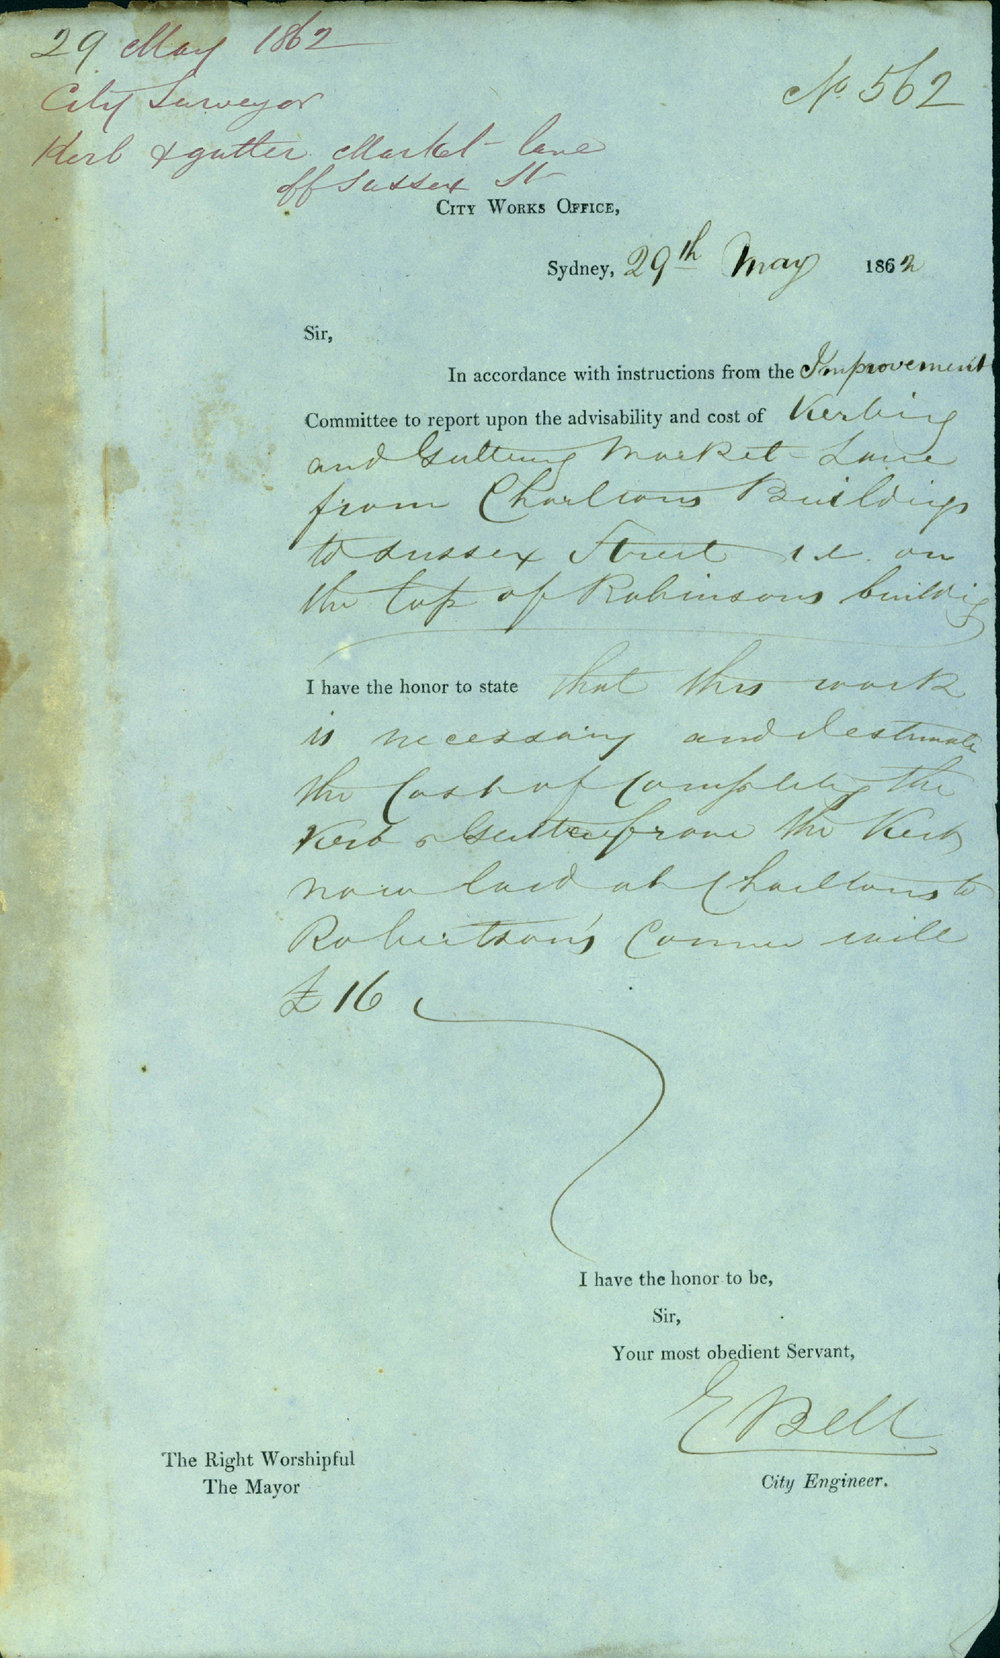 29 May 1862
City Surveyor
Kerb & gutter Market lane
off Sussex St
No. 562
City Works Office,
Sydney, 29th May 1862
Sir,
In accordance with instructions from the Improvement
Committee to report upon the advisability and cost of Kerbing
and Guttering Market-Lane
from Charltons Buildings
to Sussex Street i.e. on
the top of Robinsons building
I have the honor to state that this work
is necessary and I estimate
the Cost of Completing the
Kerb & Gutter from the Kerb
now laid at Charltons to
Robertson's Corner will
£16
I have the honor to be,
Sir,
Your most obedient Servant,
E Bell
City Engineer.
The Right Worshipful
The Mayor